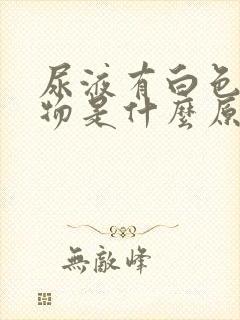 尿液有白色
物是什麼原
無敵峰